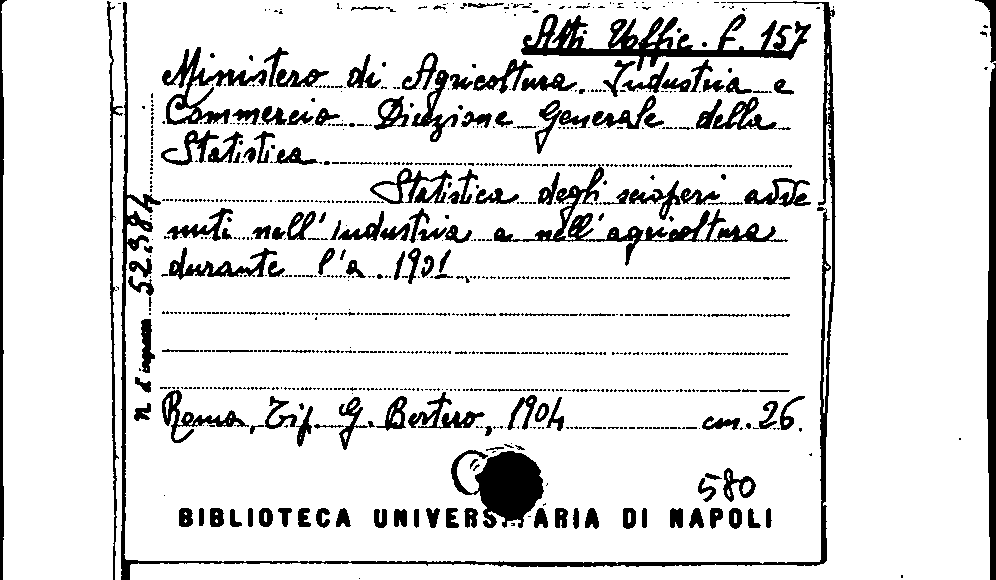 Atti Uffic. F. 157
Ministero di Agricoltura. Industria e
Commercio. Direzione Generale della
Statistica.
Statistica degli scioperi avve
nuti nell'industria e nell'agricoltura
durante l'a. 1901.
Roma, Tip. G. Bertero, 1904 cm. 26.
580
BIBLIOTECA UNIVERSITARIA DI NAPOLI
n d'ingresso 52384